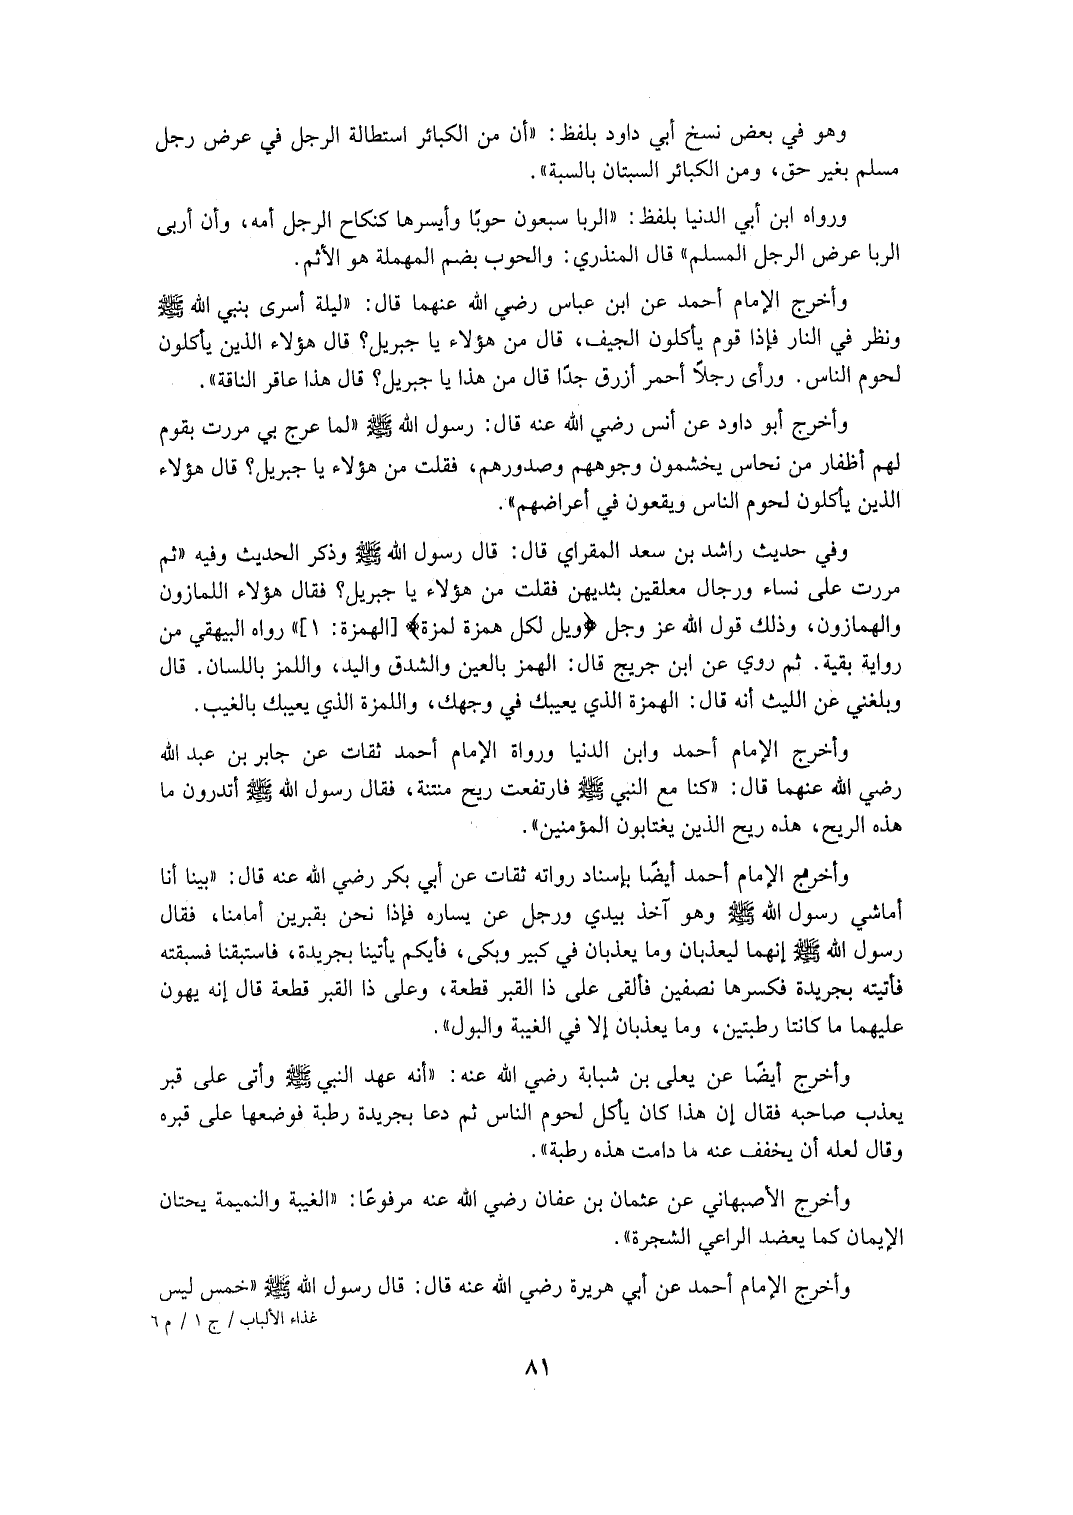 وهو في بعض نسخ أبي داود بلفظ: «أن من الكبائر استطالة الرجل في عرض رجل
مسلم بغير حق، ومن الكبائر السبتان بالسبة».
ورواه ابن أبي الدنيا بلفظ: «الربا سبعون حوبًا وأيسرها كنكاح الرجل أمه، وأن أربى
الربا عرض الرجل المسلم» قال المنذري: والحوب بضم المهملة هو الأثم.
وأخرج الإمام أحمد عن ابن عباس رضي الله عنهما قال: «ليلة أسرى بنبي الله ﷺ
ونظر في النار فإذا قوم يأكلون الجيف، قال من هؤلاء يا جبريل؟ قال هؤلاء الذين يأكلون
لحوم الناس. ورأى رجلاً أحمر أزرق جدًا قال من هذا يا جبريل؟ قال هذا عاقر الناقة».
وأخرج أبو داود عن أنس رضي الله عنه قال: رسول الله ﷺ «لما عرج بي مررت بقوم
لهم أظفار من نحاس يخشمون وجوههم وصدورهم، فقلت من هؤلاء يا جبريل؟ قال هؤلاء
الذين يأكلون لحوم الناس ويقعون في أعراضهم».
وفي حديث راشد بن سعد المقراي قال: قال رسول الله ﷺ وذكر الحديث وفيه «ثم
مررت على نساء ورجال معلقين بثديهن فقلت من هؤلاء يا جبريل؟ فقال هؤلاء اللمازون
والهمازون، وذلك قول الله عز وجل ﴿ويل لكل همزة لمزة﴾ [الهمزة: ١]» رواه البيهقي من
رواية بقية. ثم روي عن ابن جريج قال: الهمز بالعين والشدق واليد، واللمز باللسان. قال
وبلغني عن الليث أنه قال: الهمزة الذي يعيبك في وجهك، واللمزة الذي يعيبك بالغيب.
وأخرج الإمام أحمد وابن الدنيا ورواة الإمام أحمد ثقات عن جابر بن عبد الله
رضي الله عنهما قال: «كنا مع النبي ﷺ فارتفعت ريح منتنة، فقال رسول الله ﷺ أتدرون ما
هذه الريح، هذه ريح الذين يغتابون المؤمنين».
وأخرج الإمام أحمد أيضًا بإسناد رواته ثقات عن أبي بكر رضي الله عنه قال: «بينا أنا
أماشي رسول الله ﷺ وهو آخذ بيدي ورجل عن يساره فإذا نحن بقبرين أمامنا، فقال
رسول الله ﷺ إنهما ليعذبان وما يعذبان في كبير وبكى، فأيكم يأتينا بجريدة، فاستبقنا فسبقته
فأتيته بجريدة فكسرها نصفين فألقى على ذا القبر قطعة، وعلى ذا القبر قطعة قال إنه يهون
عليهما ما كانتا رطبتين، وما يعذبان إلا في الغيبة والبول».
وأخرج أيضًا عن يعلى بن شبابة رضي الله عنه: «أنه عهد النبي ﷺ وأتى على قبر
يعذب صاحبه فقال إن هذا كان يأكل لحوم الناس ثم دعا بجريدة رطبة فوضعها على قبره
وقال لعله أن يخفف عنه ما دامت هذه رطبة».
وأخرج الأصبهاني عن عثمان بن عفان رضي الله عنه مرفوعًا: «الغيبة والنميمة يحتان
الإيمان كما يعضد الراعي الشجرة».
وأخرج الإمام أحمد عن أبي هريرة رضي الله عنه قال: قال رسول الله ﷺ «خمس ليس
غذاء الألباب/ ج ١/ م ٦
٨١